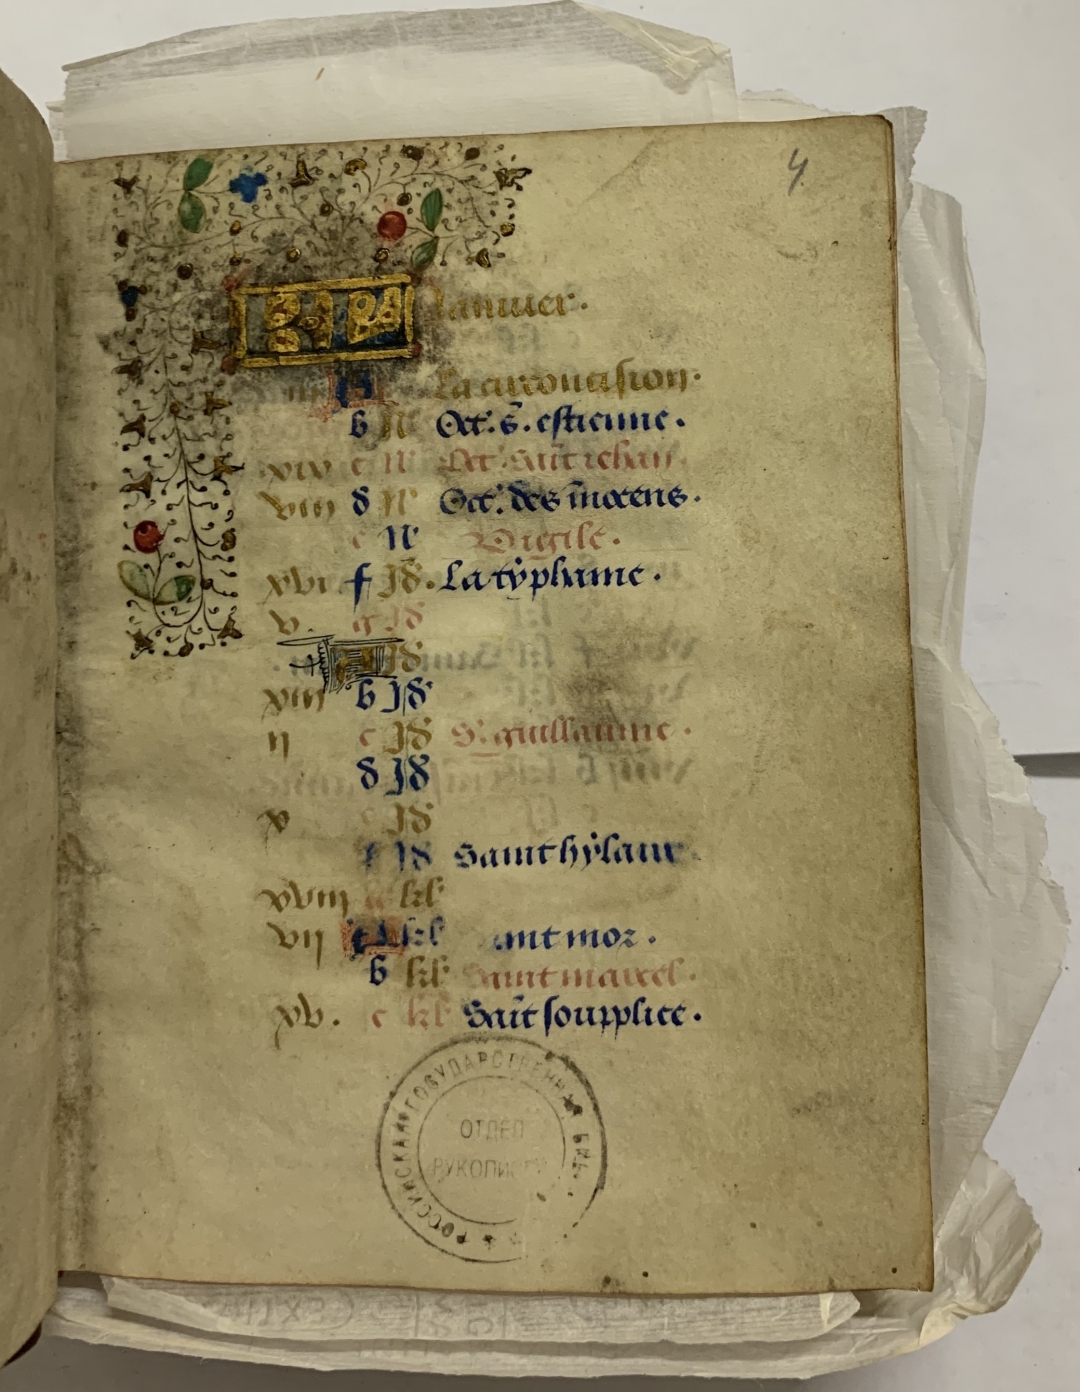 4
Januier.
A La circoncision.
b N Oct. s. estienne.
xix c N Oct. saīt iehan.
viii d N Oct. des inocens.
e N Vigile.
xvi f Id. La typhaine.
v. g Id
A Id
xiii b Id
ii c Id S. guillaume.
d Id
x e Id
f Id Saint hylaire
xviii g kl
vii A kl aint mor.
b kl Saint marcel.
xv. c kl Saīt soupplice.
РОССИЙСКАЯ ГОСУДАРСТВЕННАЯ БИБ
ОТДЕЛ
РУКОПИСЕЙ